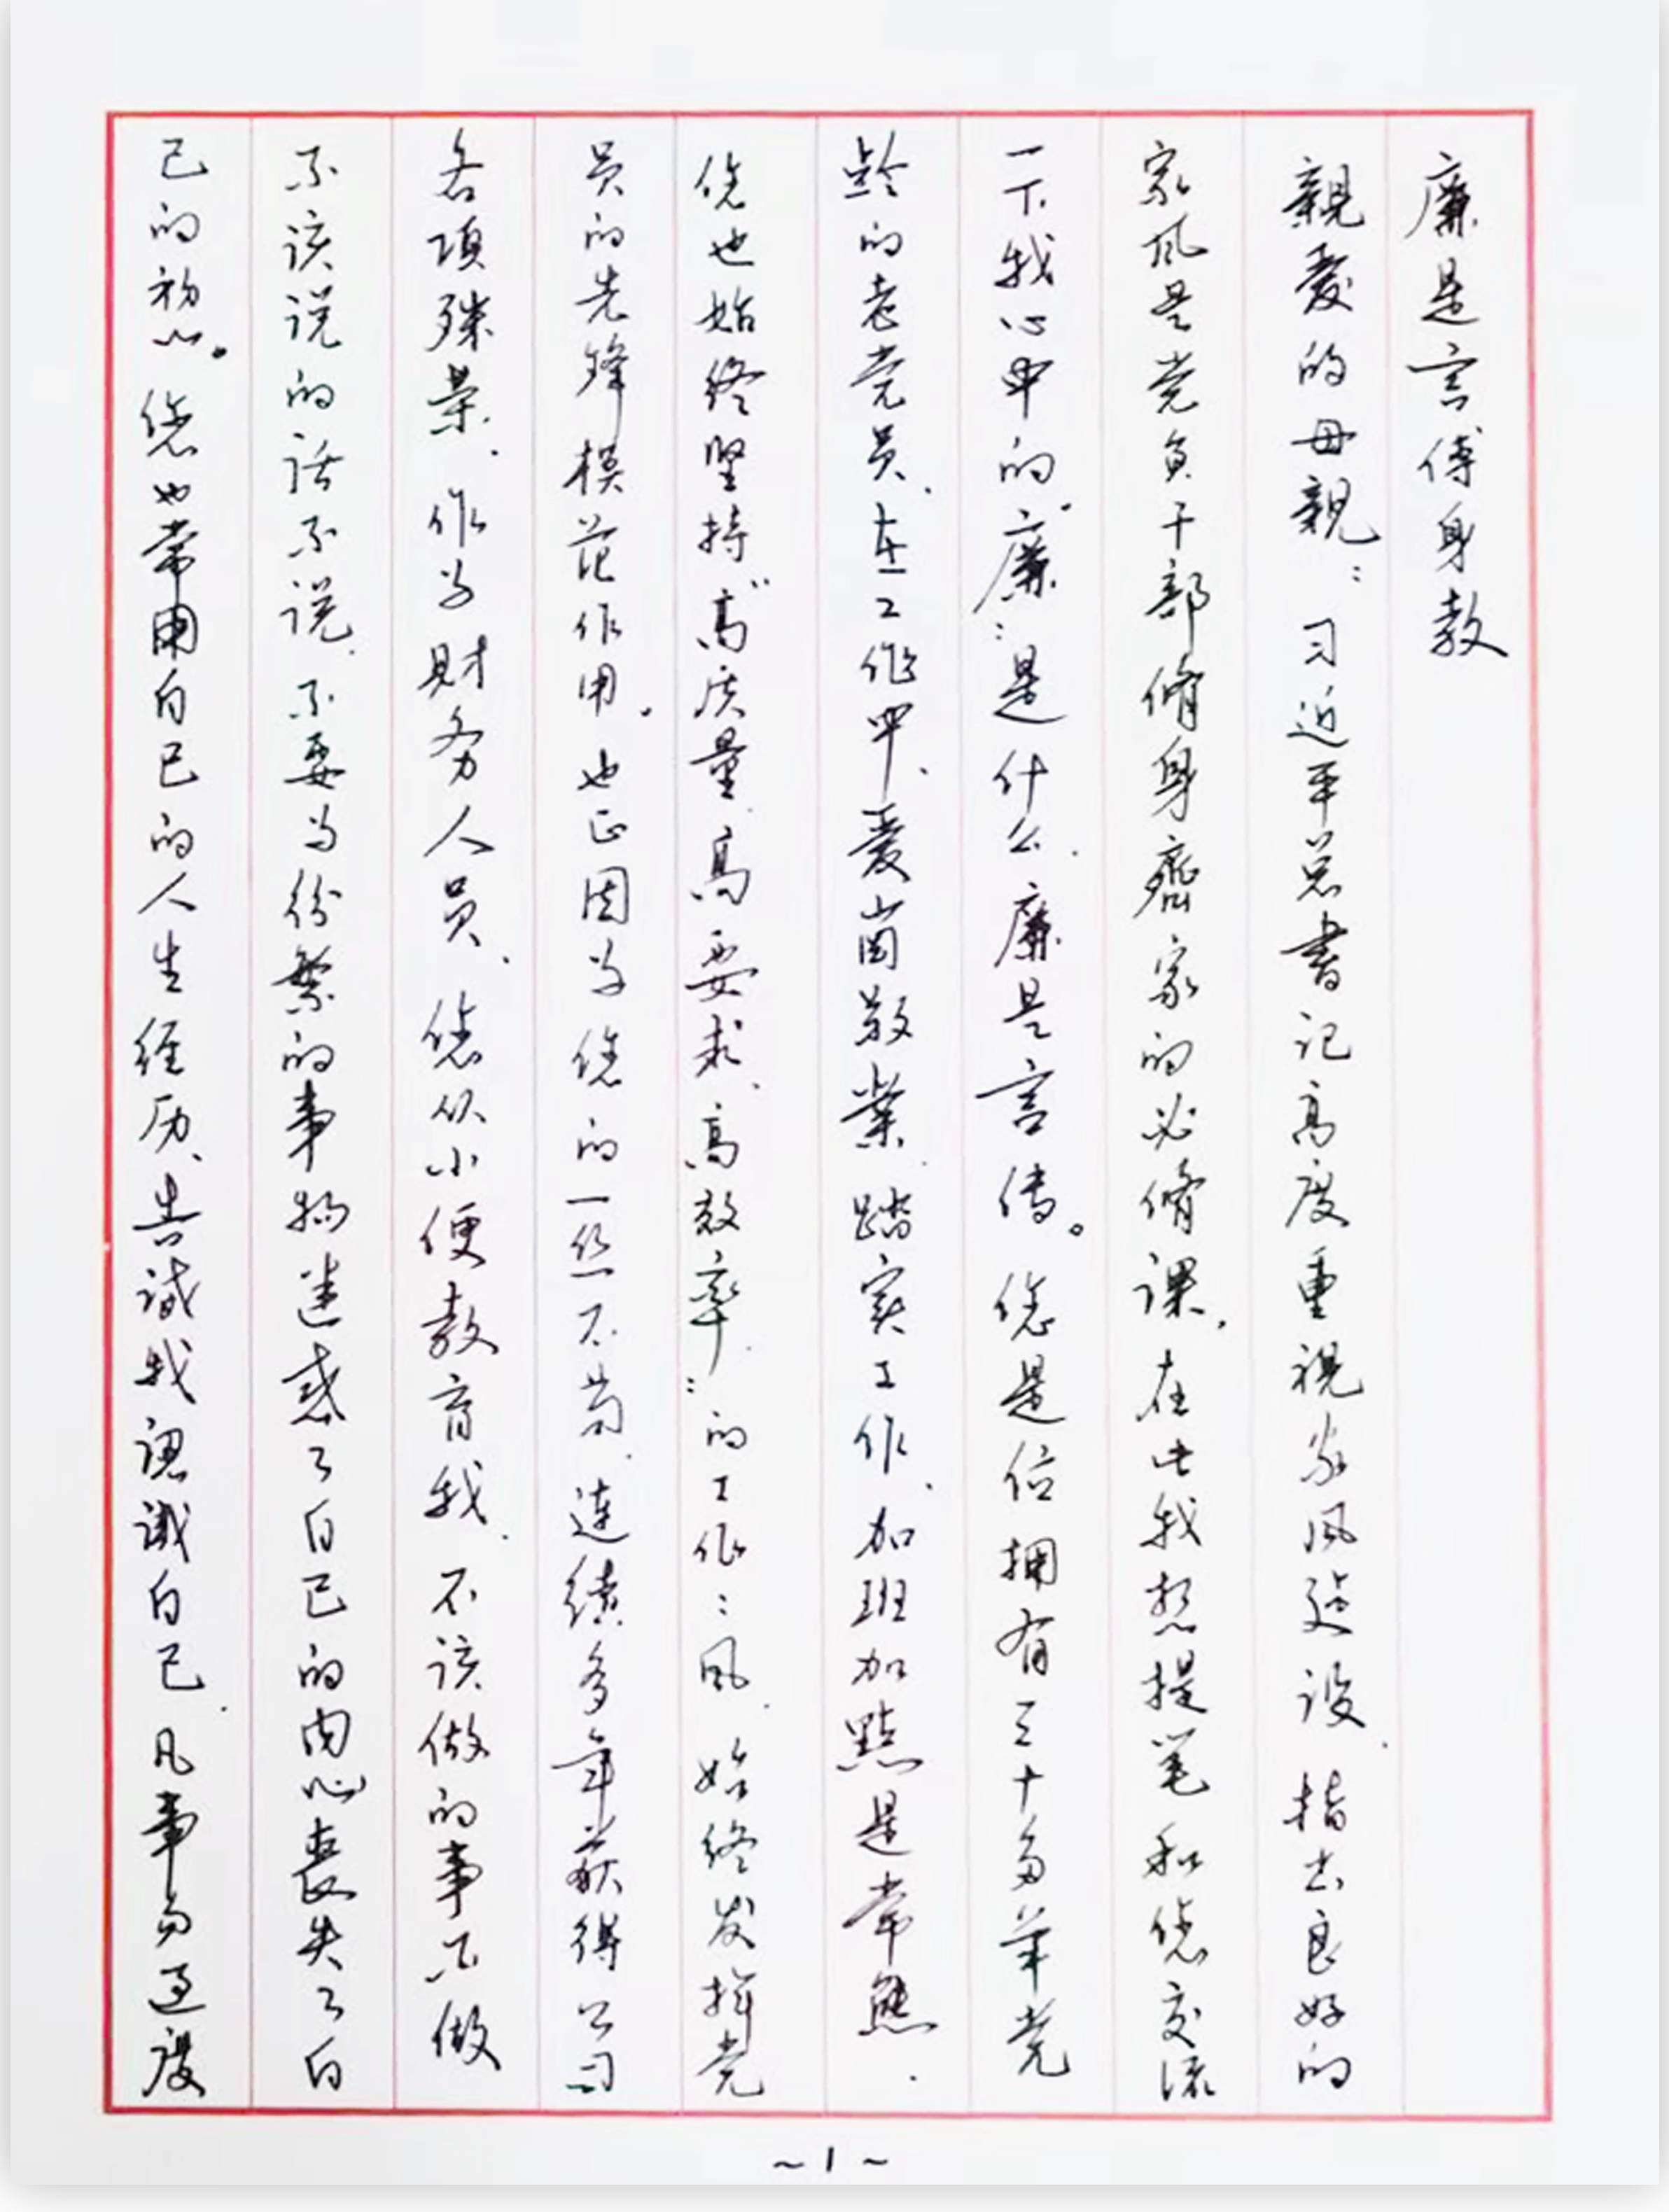 廉是言傳身教
親愛的母親：习近平总書记高度重視家风建设、指出良好的
家风是党员干部脩身齊家的必脩课，在此我想提笔和您交流
一下，我心中的"廉"是什么、廉是言传。您是位拥有三十多年党
龄的老党员，在工作中、愛崗敬業、踏实工作、加班加點是常態、
您也始终坚持"高质量、高要求、高效率"的工作作风、始终发挥党
员的先鋒模范作用，也正因为您的一丝不苟、连续多年获得公司
各項殊荣、作为財务人员、您从小便教育我、不该做的事不做
不该说的话不说、不要为纷繁的事物迷惑了自己的内心丧失了自
己的初心。您也常用自己的人生经历、告诫我認識自己、凡事勿過度
~1~